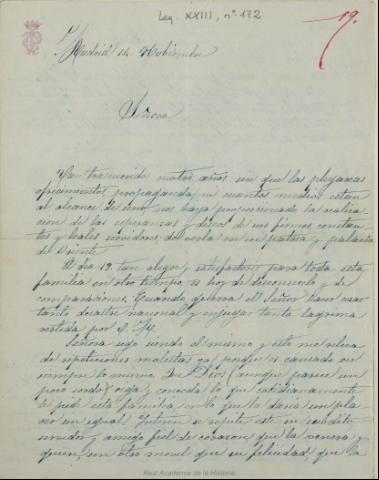 Leg. XXIII, nº 172
19.
Madrid 14 Nobiembre
Señora
Van trascurridos cuatro años sin que las plegarias
ofrecimientos propaganda, ni cuantos medios estan
al alcance de uno, nos haya proporcionado la realiza-
cion de las esperanzas y deseos de sus firmes constan-
tes y leales servidores de verla en su patria y palacio
de Oriente.
El dia 19 tan alegre y satisfactorio para toda esta
familia en otro tiempo es hoy de desconsuelo y de
comparaciones. Quando querra el Señor hacer cesar
tanto desastre nacional y enjugar tanta lagrima
vertida por S. M.
Señora sigo siendo el mismo y esto me releva
de repeticiones molestas ya porque es cansado oir
siempre lo mismo. De Dios (aunque parece un
poco sordo) oiga y conceda lo que cotidianamente
le pide esta familia en lo que la daria un pla-
cer sin igual. Interin se repite este su
servidor y amigo fiel de corazon que la venera y
quiere, sin otro movil que su felicidad, que la
Real Academia de la Historia